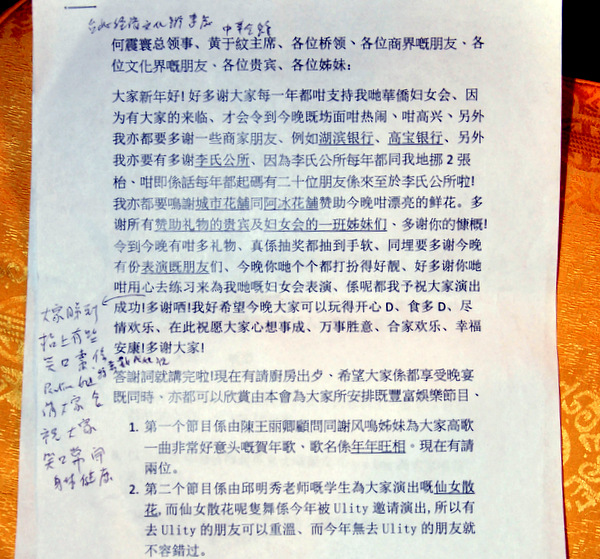 何震寰总领事、黄于紋主席、各位桥领、各位商界嘅朋友、各
位文化界嘅朋友、各位贵宾、各位姊妹:
大家新年好! 好多谢大家每一年都咁支持我哋華僑妇女会、因
为有大家的来临、才会令到今晚既坊面咁热闹、咁高兴、另外
我亦都要多谢一些商家朋友、例如湖滨银行、高宝银行、另外
我亦要有多谢李氏公所、因為李氏公所每年都同我地挪 2 張
枱、咁即係話每年都起碼有二十位朋友係來至於李氏公所啦!
我亦都要鳴謝城市花舗同阿冰花舗赞助今晚咁漂亮的鲜花。多
谢所有赞助礼物的贵宾及妇女会的一班姊妹们、多谢你的慷慨!
令到今晚有咁多礼物、真係抽奖都抽到手软、同埋要多谢今晚
有份表演既朋友们、今晚你哋个个都打扮得好靓、好多谢你哋
咁用心去练习来為我哋嘅妇女会表演、係呢都我予祝大家演出
成功!多谢晒!我好希望今晚大家可以玩得开心 D、食多 D、尽
情欢乐、在此祝愿大家心想事成、万事胜意、合家欢乐、幸福
安康!多谢大家!
大家
笑口
大家
祝大家
笑口常开
身体健康
答謝詞就講完啦!現在有請廚房出夕、希望大家係都享受晚宴
既同時、亦都可以欣賞由本會為大家所安排既豐富娛樂節目、
1. 第一个節目係由陳王丽卿顧問同谢风鳴姊妹為大家高歌
一曲非常好意头嘅賀年歌、歌名係年年旺相。現在有請
兩位。
2. 第二个節目係由邱明秀老师嘅学生為大家演出嘅仙女散
花,而仙女散花呢隻舞係今年被 Ulity 邀请演出,所以有
去 Ulity 的朋友可以重溫、而今年無去 Ulity 的朋友就
不容錯过。